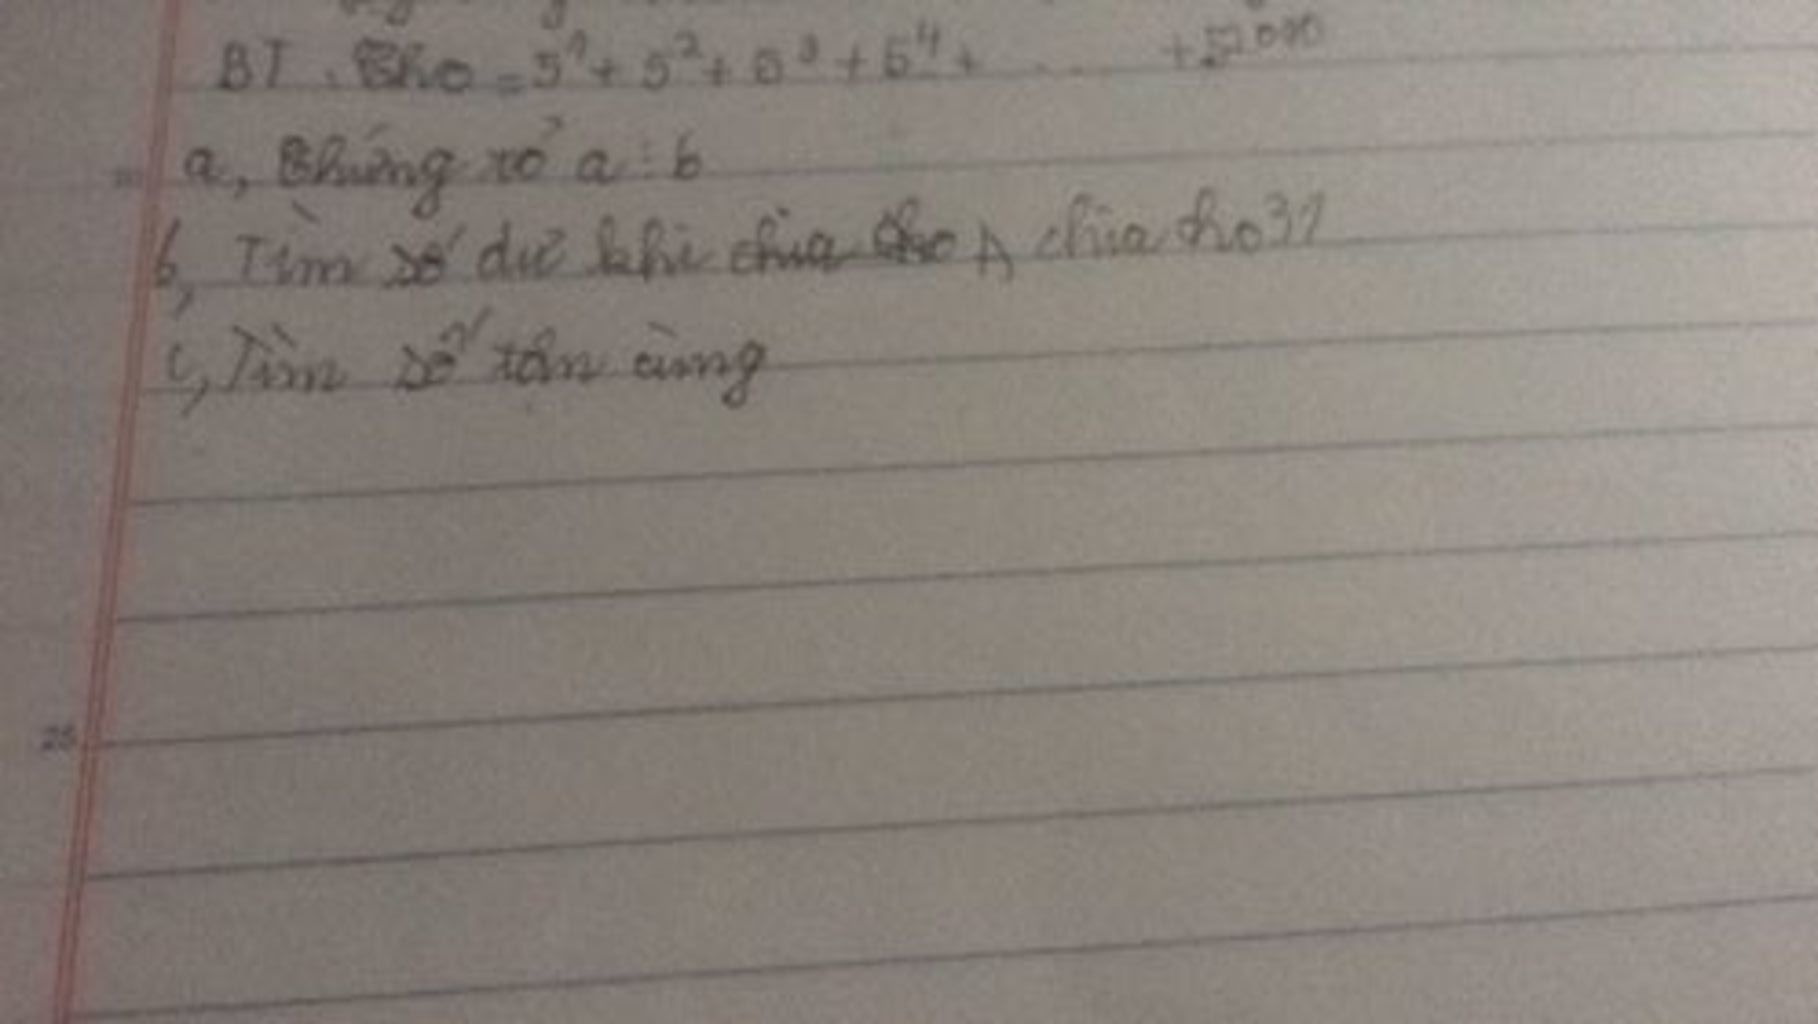 BT. Cho = 5¹ + 5² + 5³ + 5⁴ + ... +
a, Chứng tỏ a ⋮ b
b, Tìm số dư khi chia cho A chia cho 31
c, Tìm số tận cùng
25